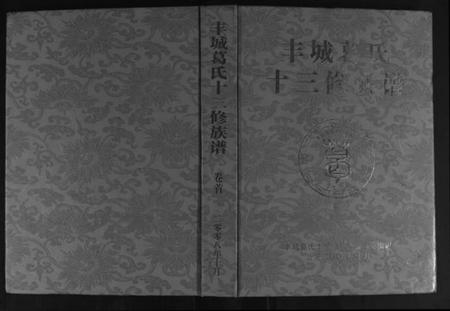 丰城葛氏
十三修族谱
丰城葛氏十三修族谱
卷首
二〇〇八年十月